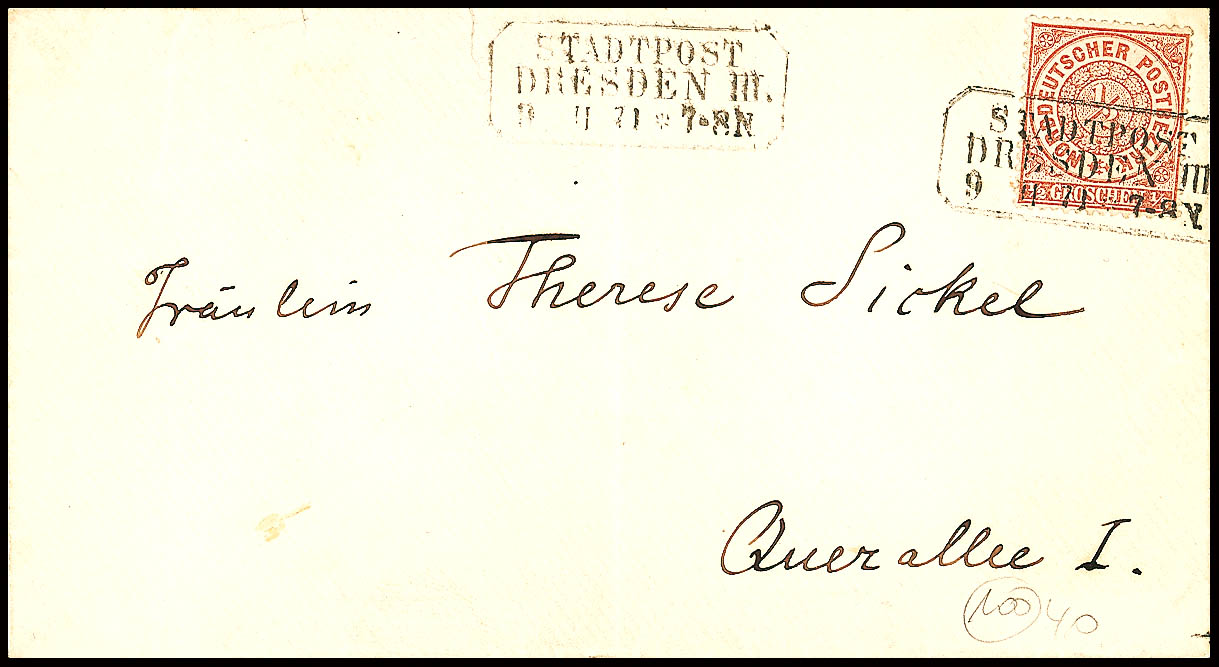 STADTPOST
DRESDEN III.
9 II 71 * 7-8N
NORDDEUTSCHER POSTBEZIRK
1/2
GROSCHEN
STADTPOST
DRESDEN III
9 II 71 * 7-8N
Fräulein Therese Sickel
Querallee I.
100 40